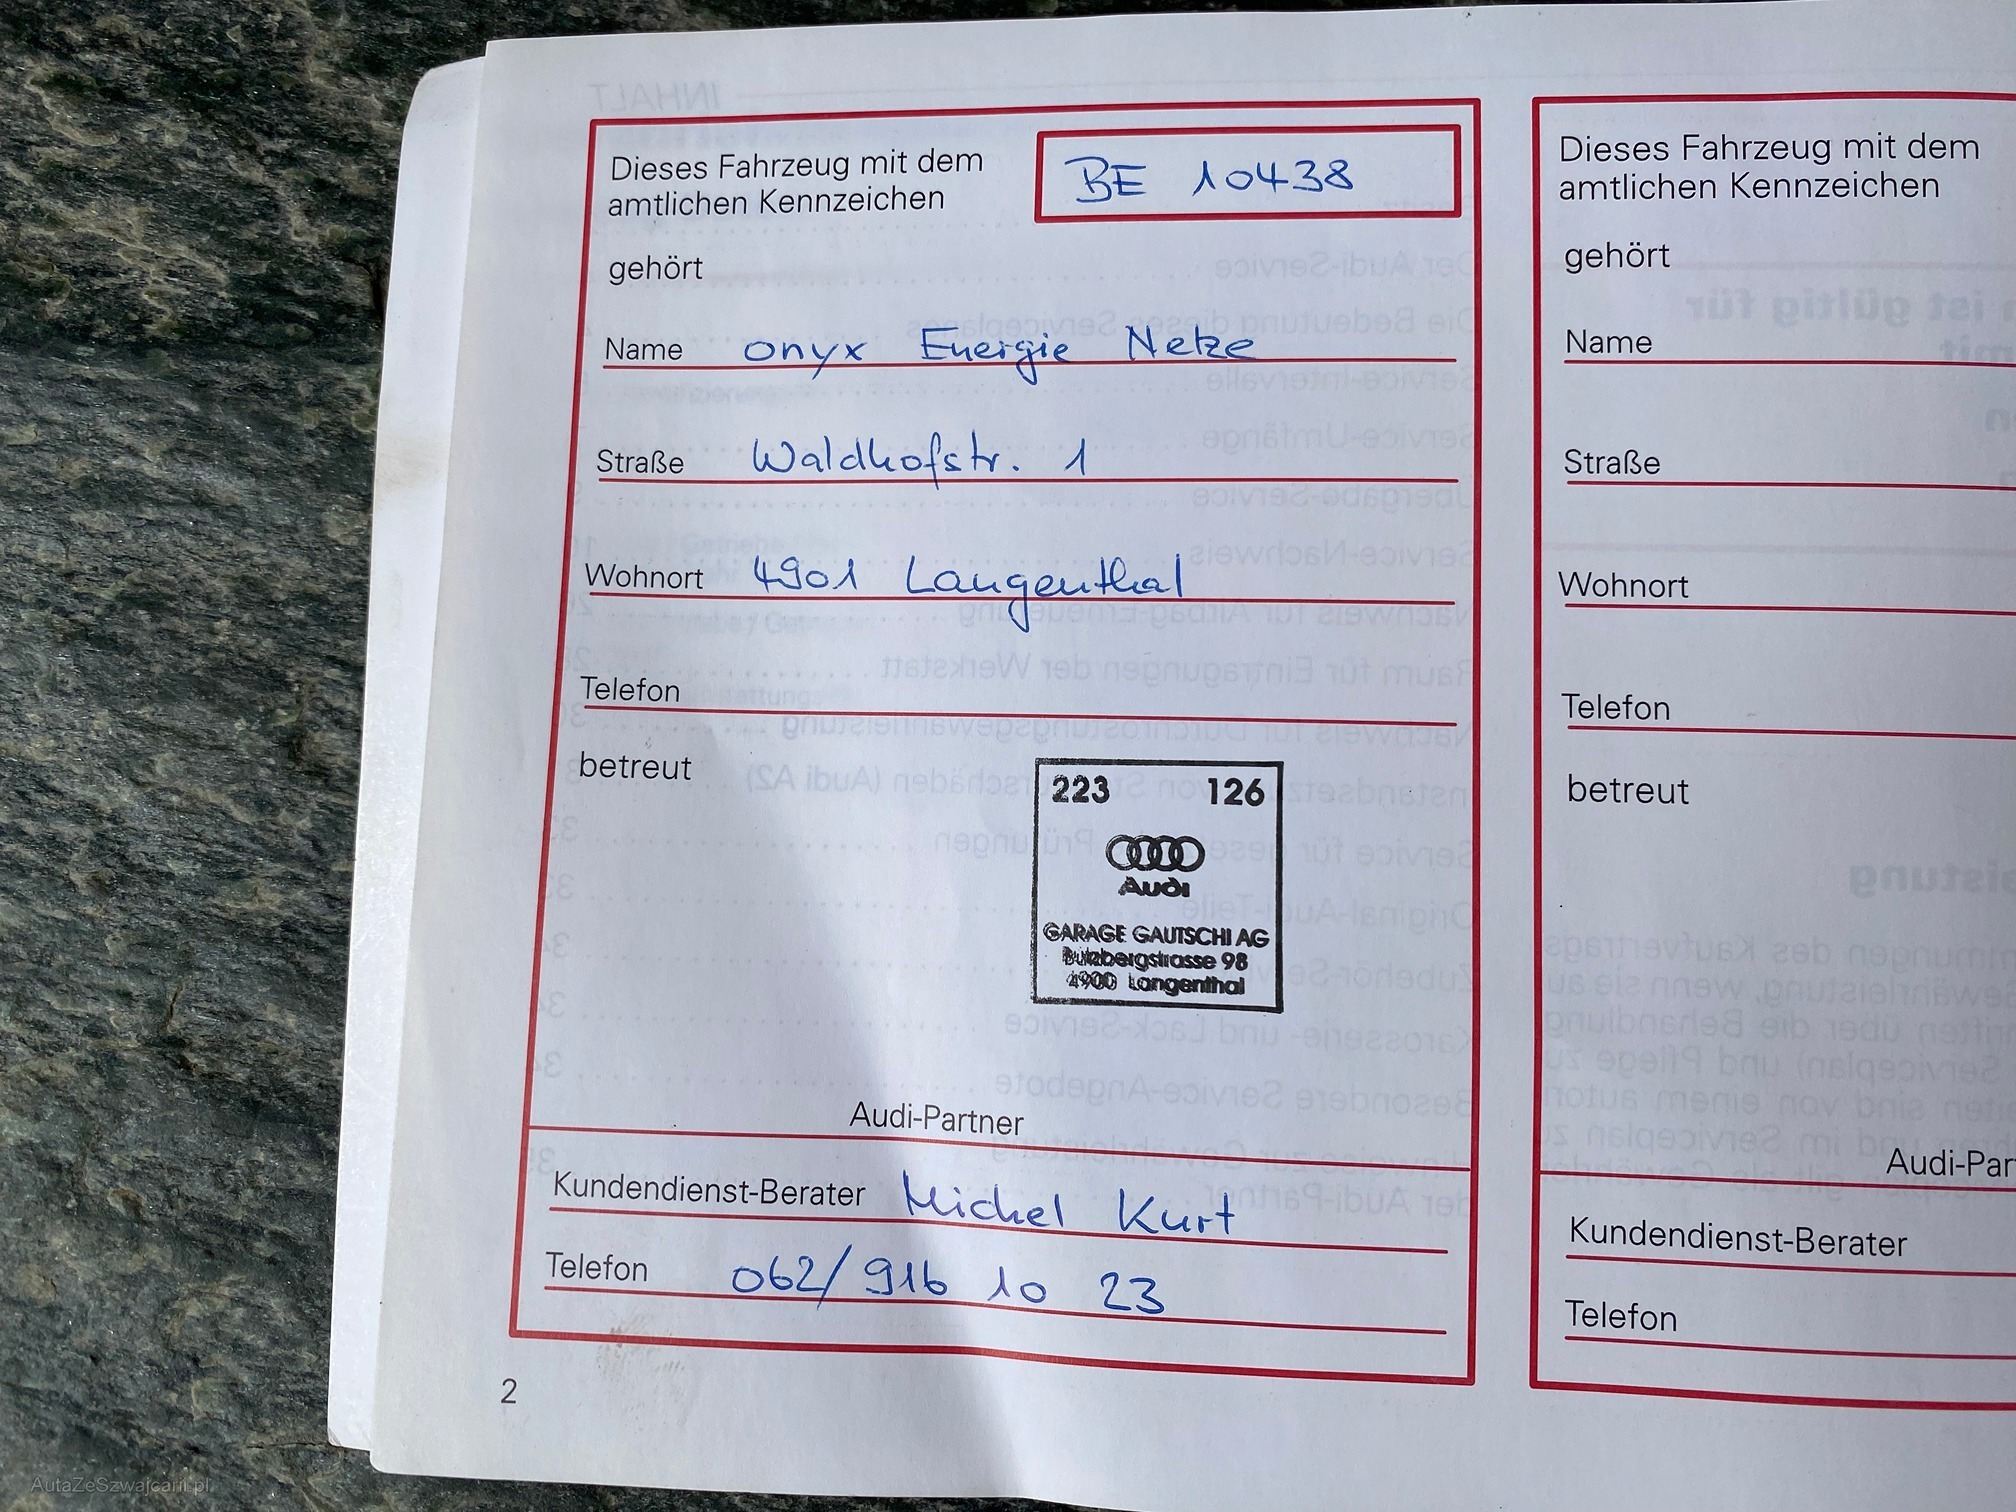 Dieses Fahrzeug mit dem
amtlichen Kennzeichen
BE 10438
gehört
Name onyx Energie Netze
Straße Waldhofstr. 1
Wohnort 4901 Langenthal
Telefon
betreut
223 126
Audi
GARAGE GAUTSCHI AG
Bützbergstrasse 98
4900 Langenthal
Audi-Partner
Kundendienst-Berater Michel Kurt
Telefon 062/916 10 23
2
Dieses Fahrzeug mit dem
amtlichen Kennzeichen
gehört
Name
Straße
Wohnort
Telefon
betreut
Audi-Par
Kundendienst-Berater
Telefon
AutaZeSzwajcarii.pl